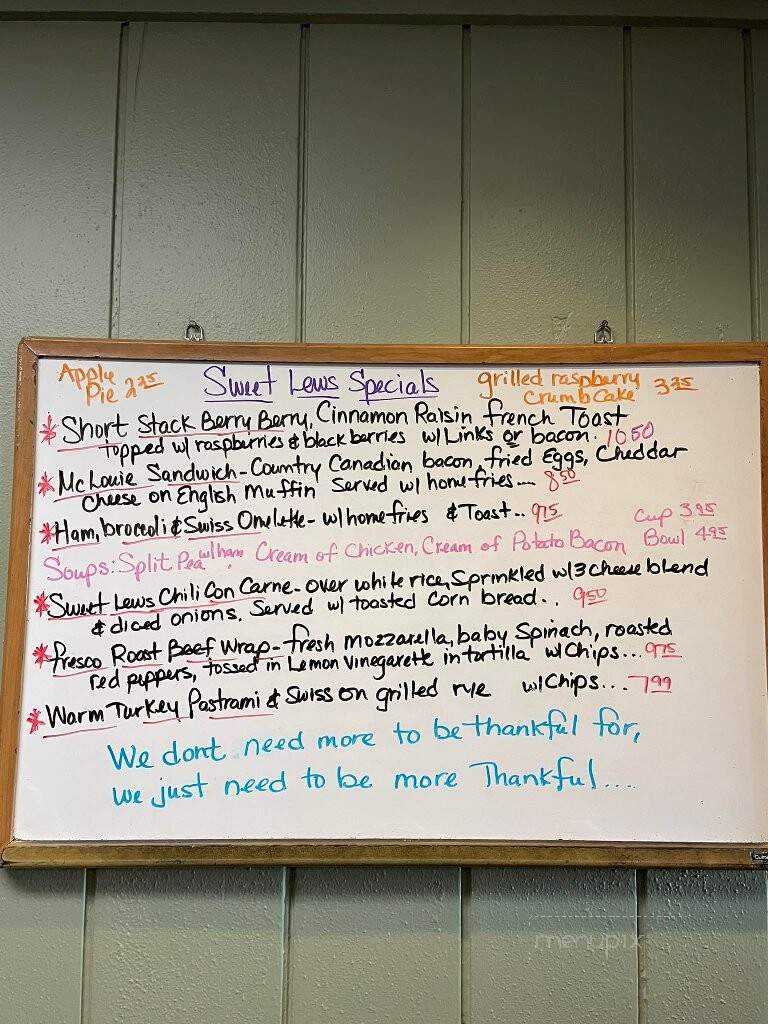 Apple
Pie 2.25
Sweet Lews Specials
grilled raspberry
Crumb Cake 3.25
* Short Stack Berry Berry, Cinnamon Raisin french Toast
Topped w/ raspberries & blackberries w/ Links or bacon. 10.50
* McLouie Sandwich - Country Canadian bacon, fried Eggs, Cheddar
Cheese on English Muffin Served w/ homefries.... 8.50
* Ham, broccoli & Swiss Omlette - w/ homefries & Toast.. 9.75
Cup 3.95
Soups: Split Pea w/ ham, Cream of Chicken, Cream of Potato Bacon Bowl 4.95
* Sweet Lews Chili Con Carne - over white rice, Sprinkled w/ 3 cheese blend
& diced onions. Served w/ toasted corn bread.. 9.50
* fresco Roast Beef Wrap - fresh mozzarella, baby Spinach, roasted
red peppers, tossed in Lemon Vinegarette in tortilla w/ Chips... 9.75
* Warm Turkey Pastrami & Swiss on grilled rye w/ Chips... 7.99
We dont need more to be thankful for,
we just need to be more Thankful....
menupix